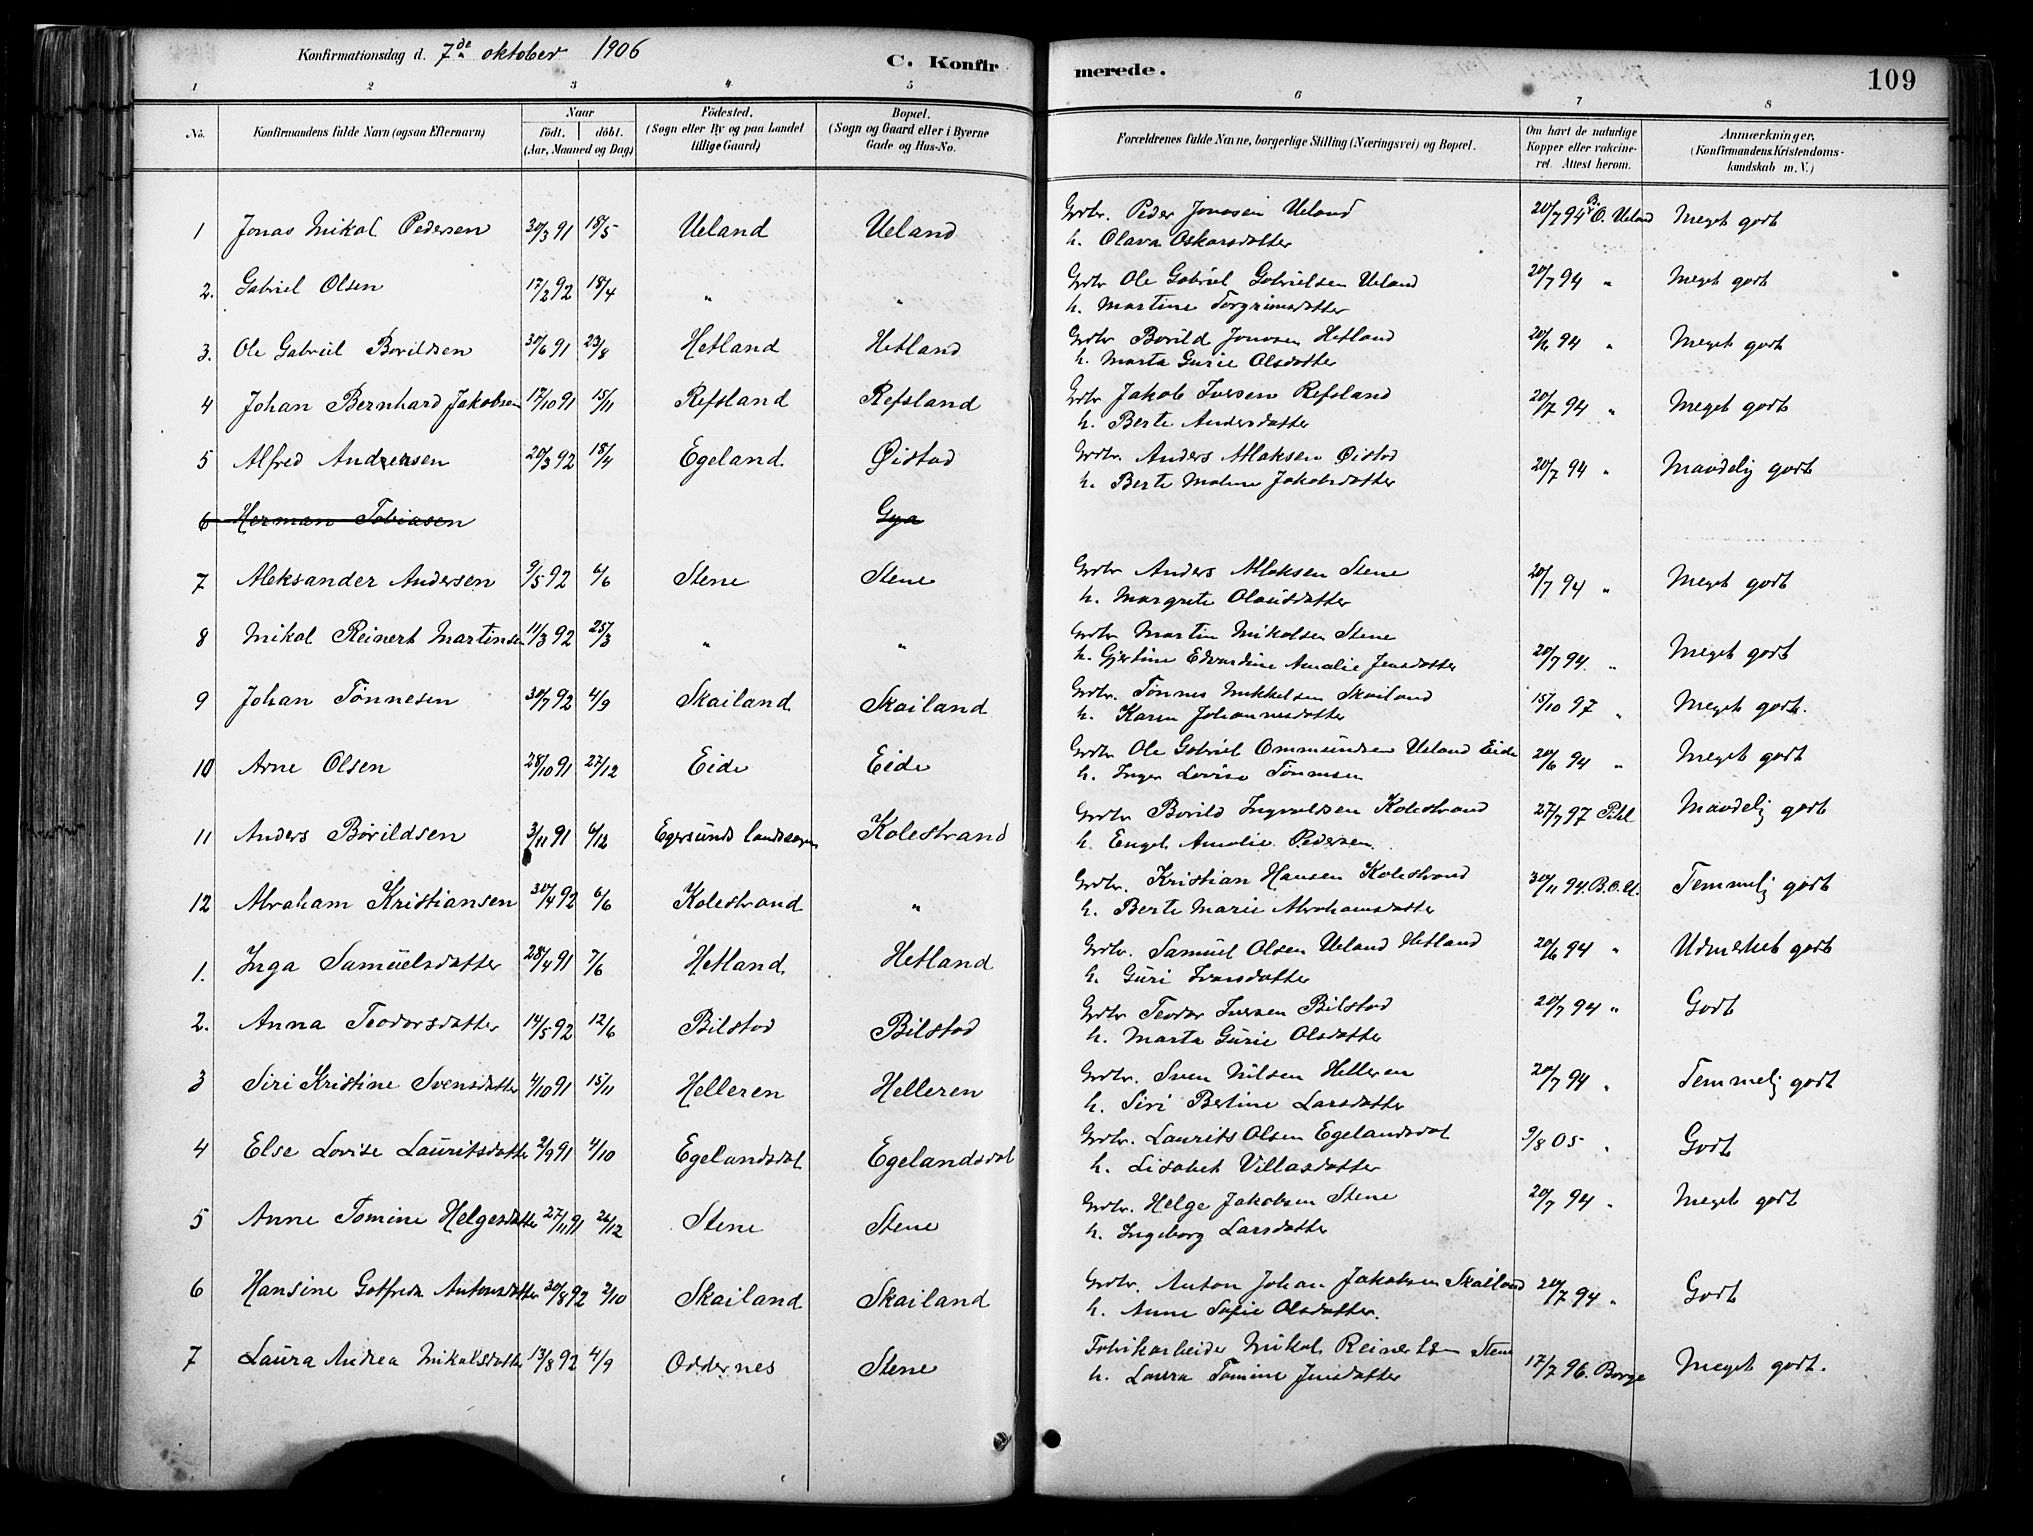 Konfirmationsdag d. 7de oktober 1906
C. Konfirmerede.
109
1 2 3 4 5 6 7 8
No. Konfirmandens fulde Navn (ogsaa Efternavn) Naar født. døbt. (Aar, Maaned og Dag) Fødested. (Sogn eller By og paa Landet tillige Gaard) Bopæl. (Sogn og Gaard eller i Byerne Gade og Hus-No. Forældrenes fulde Navne, borgerlige Stilling (Næringsvei) og Bopæl. Om havt de naturlige Kopper eller vakcineret. Attest herom. Anmærkninger. (Konfirmandens Kristendomskundskab m. V.)
1 Jonas Mikal Pedersen 30/3 91 18/5 Ueland Ueland Grdbr. Peder Jonasen Ueland 20/7 94 B. O. Ueland Meget godt
h. Olava Oskarsdatter
2. Gabriel Olsen 17/2 92 18/4 " " Grdbr Ole Gabriel Gabrielsen Ueland 20/7 94 " Meget godt
h. Martine Torgrimsdatter
3. Ole Gabriel Børildsen 30/6 91 23/8 Hetland Hetland Grdbr Børild Jonasen Hetland 20/6 94 " Meget godt
h. Marta Gurie Olsdatter
4 Johan Bernhard Jakobsen 17/10 91 15/11 Refsland Refsland Grdbr Jakob Iversen Refsland 20/7 94 " Meget godt
h. Berte Andersdatter
5 Alfred Andersen 20/3 92 18/4 Egeland Øistad Grdbr. Anders Aslaksen Øistad 20/7 94 " Maadelig godt
h. Berte Malene Jakobsdatter
6 Herman Tobiasen Gya
7 Aleksander Andersen 9/5 92 6/6 Stene Stene Grdbr Anders Aslaksen Stene 20/7 94 " Meget godt
h. Margrete Olausdatter
8 Mikal Reinert Martinsen 11/3 92 25/3 " " Grdbr Martin Mikalsen Stene 20/7 94. " Meget godt
h. Gjertine Edvardine Amalie Jensdatter
9 Johan Tønnesen 30/7 92 4/9 Skailand Skailand Grdbr. Tønnes Mikkelsen Skailand 15/10 97 " Meget godt.
h. Karen Johannesdatter
10 Arne Olsen 28/10 91 27/12 Eide Eide Grdbr Ole Gabriel Ommundsen Ueland Eide 20/6 94 " Meget godt
h. Inger Lovise Tønnesen
11 Anders Børildsen 3/11 91 6/12 Egersunds landsogn Kolestrand Grdbr Børild Ingvaldsen Kolestrand 27/7 97 Pihl Maadelig godt
h. Engel Amalie Pedersen
12 Abraham Kristiansen 30/4 92 6/6 Kolestrand " Grdbr. Kristian Hansen Kolestrand 30/11 94. B. O. U. Temmelig godt
h. Berte Marie Abrahamsdatter
1. Inga Samuelsdatter 28/4 91 7/6 Hetland Hetland Grdbr. Samuel Olsen Ueland Hetland 20/6 94 " Udmerket godt
h. Guri Ivarsdatter
2. Anna Teodorsdatter 14/5 92 12/6 Bilstad Bilstad Grdbr Teodor Iversen Bilstad 20/7 94 " Godt
h. Marta Gurie Olsdatter
3 Siri Kristine Svensdatter 4/10 91 15/11 Helleren Helleren Grdbr. Sven Nilsen Helleren 20/7 94 " Temmelig godt
h. Siri Bertine Larsdatter
4 Else Lovise Lauritsdatter 2/9 91 4/10 Egelandsdal Egelandsdal Grdbr. Laurits Olsen Egelandsdal 9/8 05 " Godt
h. Lisabet Villasdatter
5 Anne Tomine Helgesdatter 27/11 91 26/12 Stene Stene Grdbr. Helge Jakobsen Stene 20/7 94 " Meget godt
h. Ingeborg Larsdatter
6 Hansine Gotfreda Antonsdatter 30/8 92 2/10 Skailand Skailand Grdbr. Anton Johan Jakobsen Skailand 20/7 94 " Godt
h. Anne Sofie Olsdatter.
7 Laura Andrea Mikalsdatter 13/8 92 4/9 Oddernes Stene Fabrikarbeider Mikal Reinertsen Stene 17/7 96. Borge Meget godt.
h. Laura Tomine Jensdatter